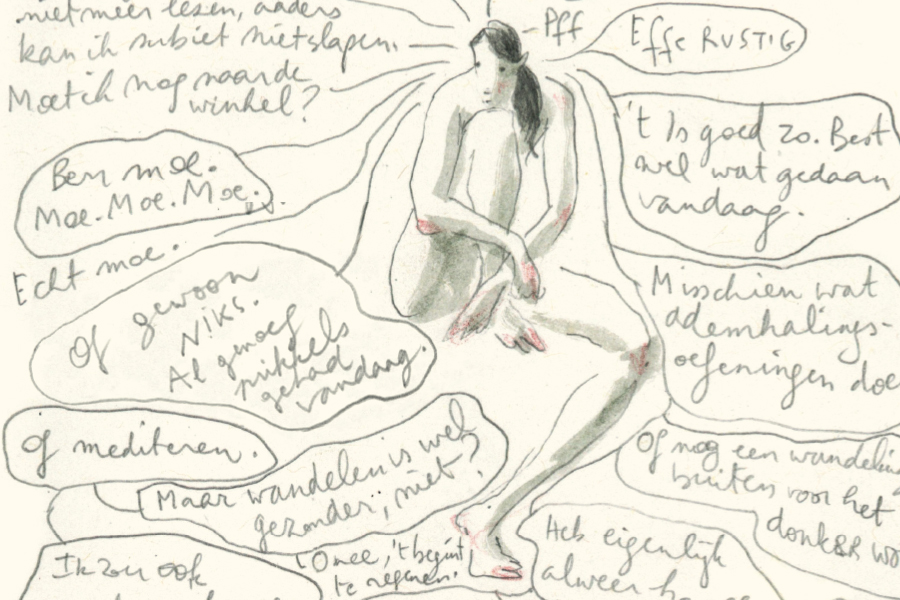 niet meer lezen, anders
kan ik subiet niet slapen.
Moet ik nog naar de
winkel?
Pff
Effe RUSTIG
't Is goed zo. Best
wel wat gedaan
vandaag.
Ben moe.
Moe. Moe. Moe.
Echt moe.
Of gewoon
NIKS.
Al genoeg
prikkels
gehad
vandaag.
Misschien wat
ademhalings-
oefeningen doe
Of mediteren.
Maar wandelen is wel
gezonder, niet?
Of nog een wandelin
buiten voor het
donkeR wo
Ik zou ook
O nee, 't begint
te regenen.
Heb eigenlijk
alweer